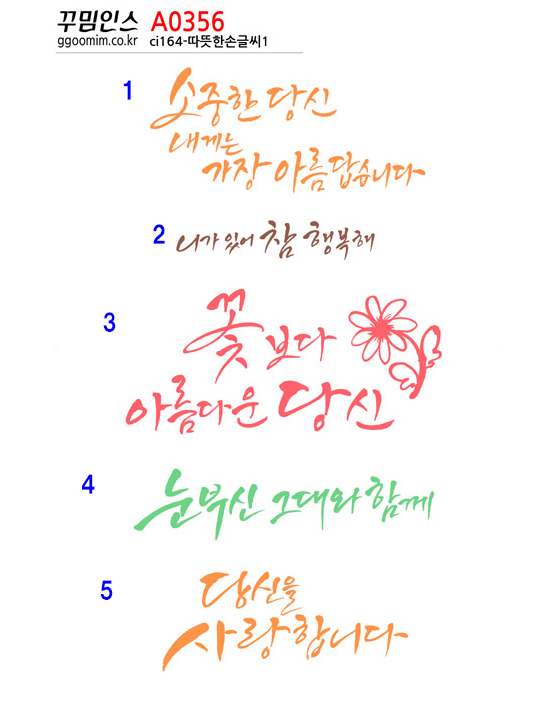 꾸밈인스 A0356
ggoomim.co.kr ci164-따뜻한손글씨1
1 소중한 당신
내게는
가장 아름답습니다
2 니가 있어 참 행복해
3 꽃보다
아름다운 당신
4 눈부신 그대와 함께
5 당신을
사랑합니다